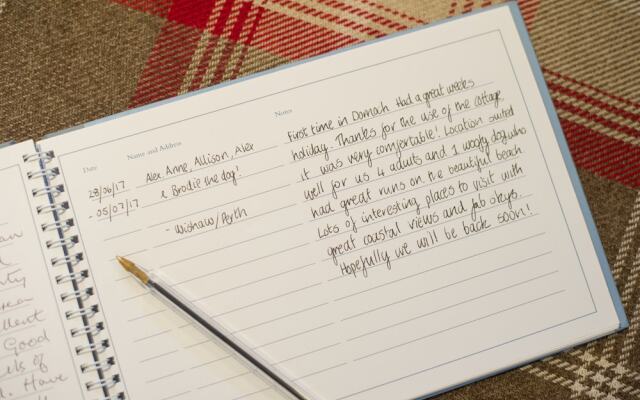 Date Name and Address Notes
28/06/17
- 05/07/17
Alex, Anne, Allison, Alex
& Brodie the dog!
- Wishaw/Perth
First time in Dornoch. Had a great weeks
holiday. Thanks for the use of the cottage
it was very comfortable! Location suited
well for us 4 adults and 1 woofy dog who
had great runs on the beautiful beach.
Lots of interesting places to visit with
great coastal views and fab skys.
Hopefully we will be back soon!
Good
. Have